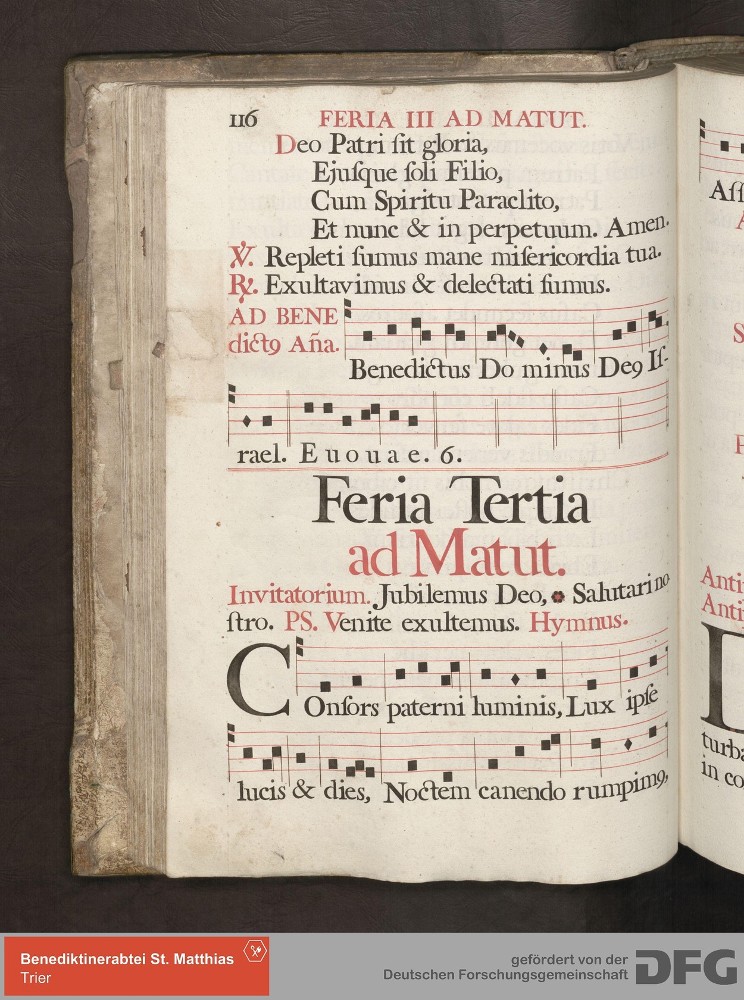 116 FERIA III AD MATUT.
Deo Patri ſit gloria,
Ejuſque ſoli Filio,
Cum Spiritu Paraclito,
Et nunc & in perpetuum. Amen.
℣. Repleti ſumus mane miſericordia tua.
℟. Exultavimus & delectati ſumus.
AD BENE
dictꝯ Aña.
Benedictus Do minus Deꝯ Iſ-
rael. E u o u a e. 6.
Feria Tertia
ad Matut.
Invitatorium. Jubilemus Deo, * Salutari no
ſtro. PS. Venite exultemus. Hymnus.
COnſors paterni luminis, Lux ipſe
lucis & dies, Noctem canendo rumpimꝯ,
Aſſ
turba
in co
Anti
Anti
Benediktinerabtei St. Matthias
Trier
gefördert von der
Deutschen Forschungsgemeinschaft
DFG